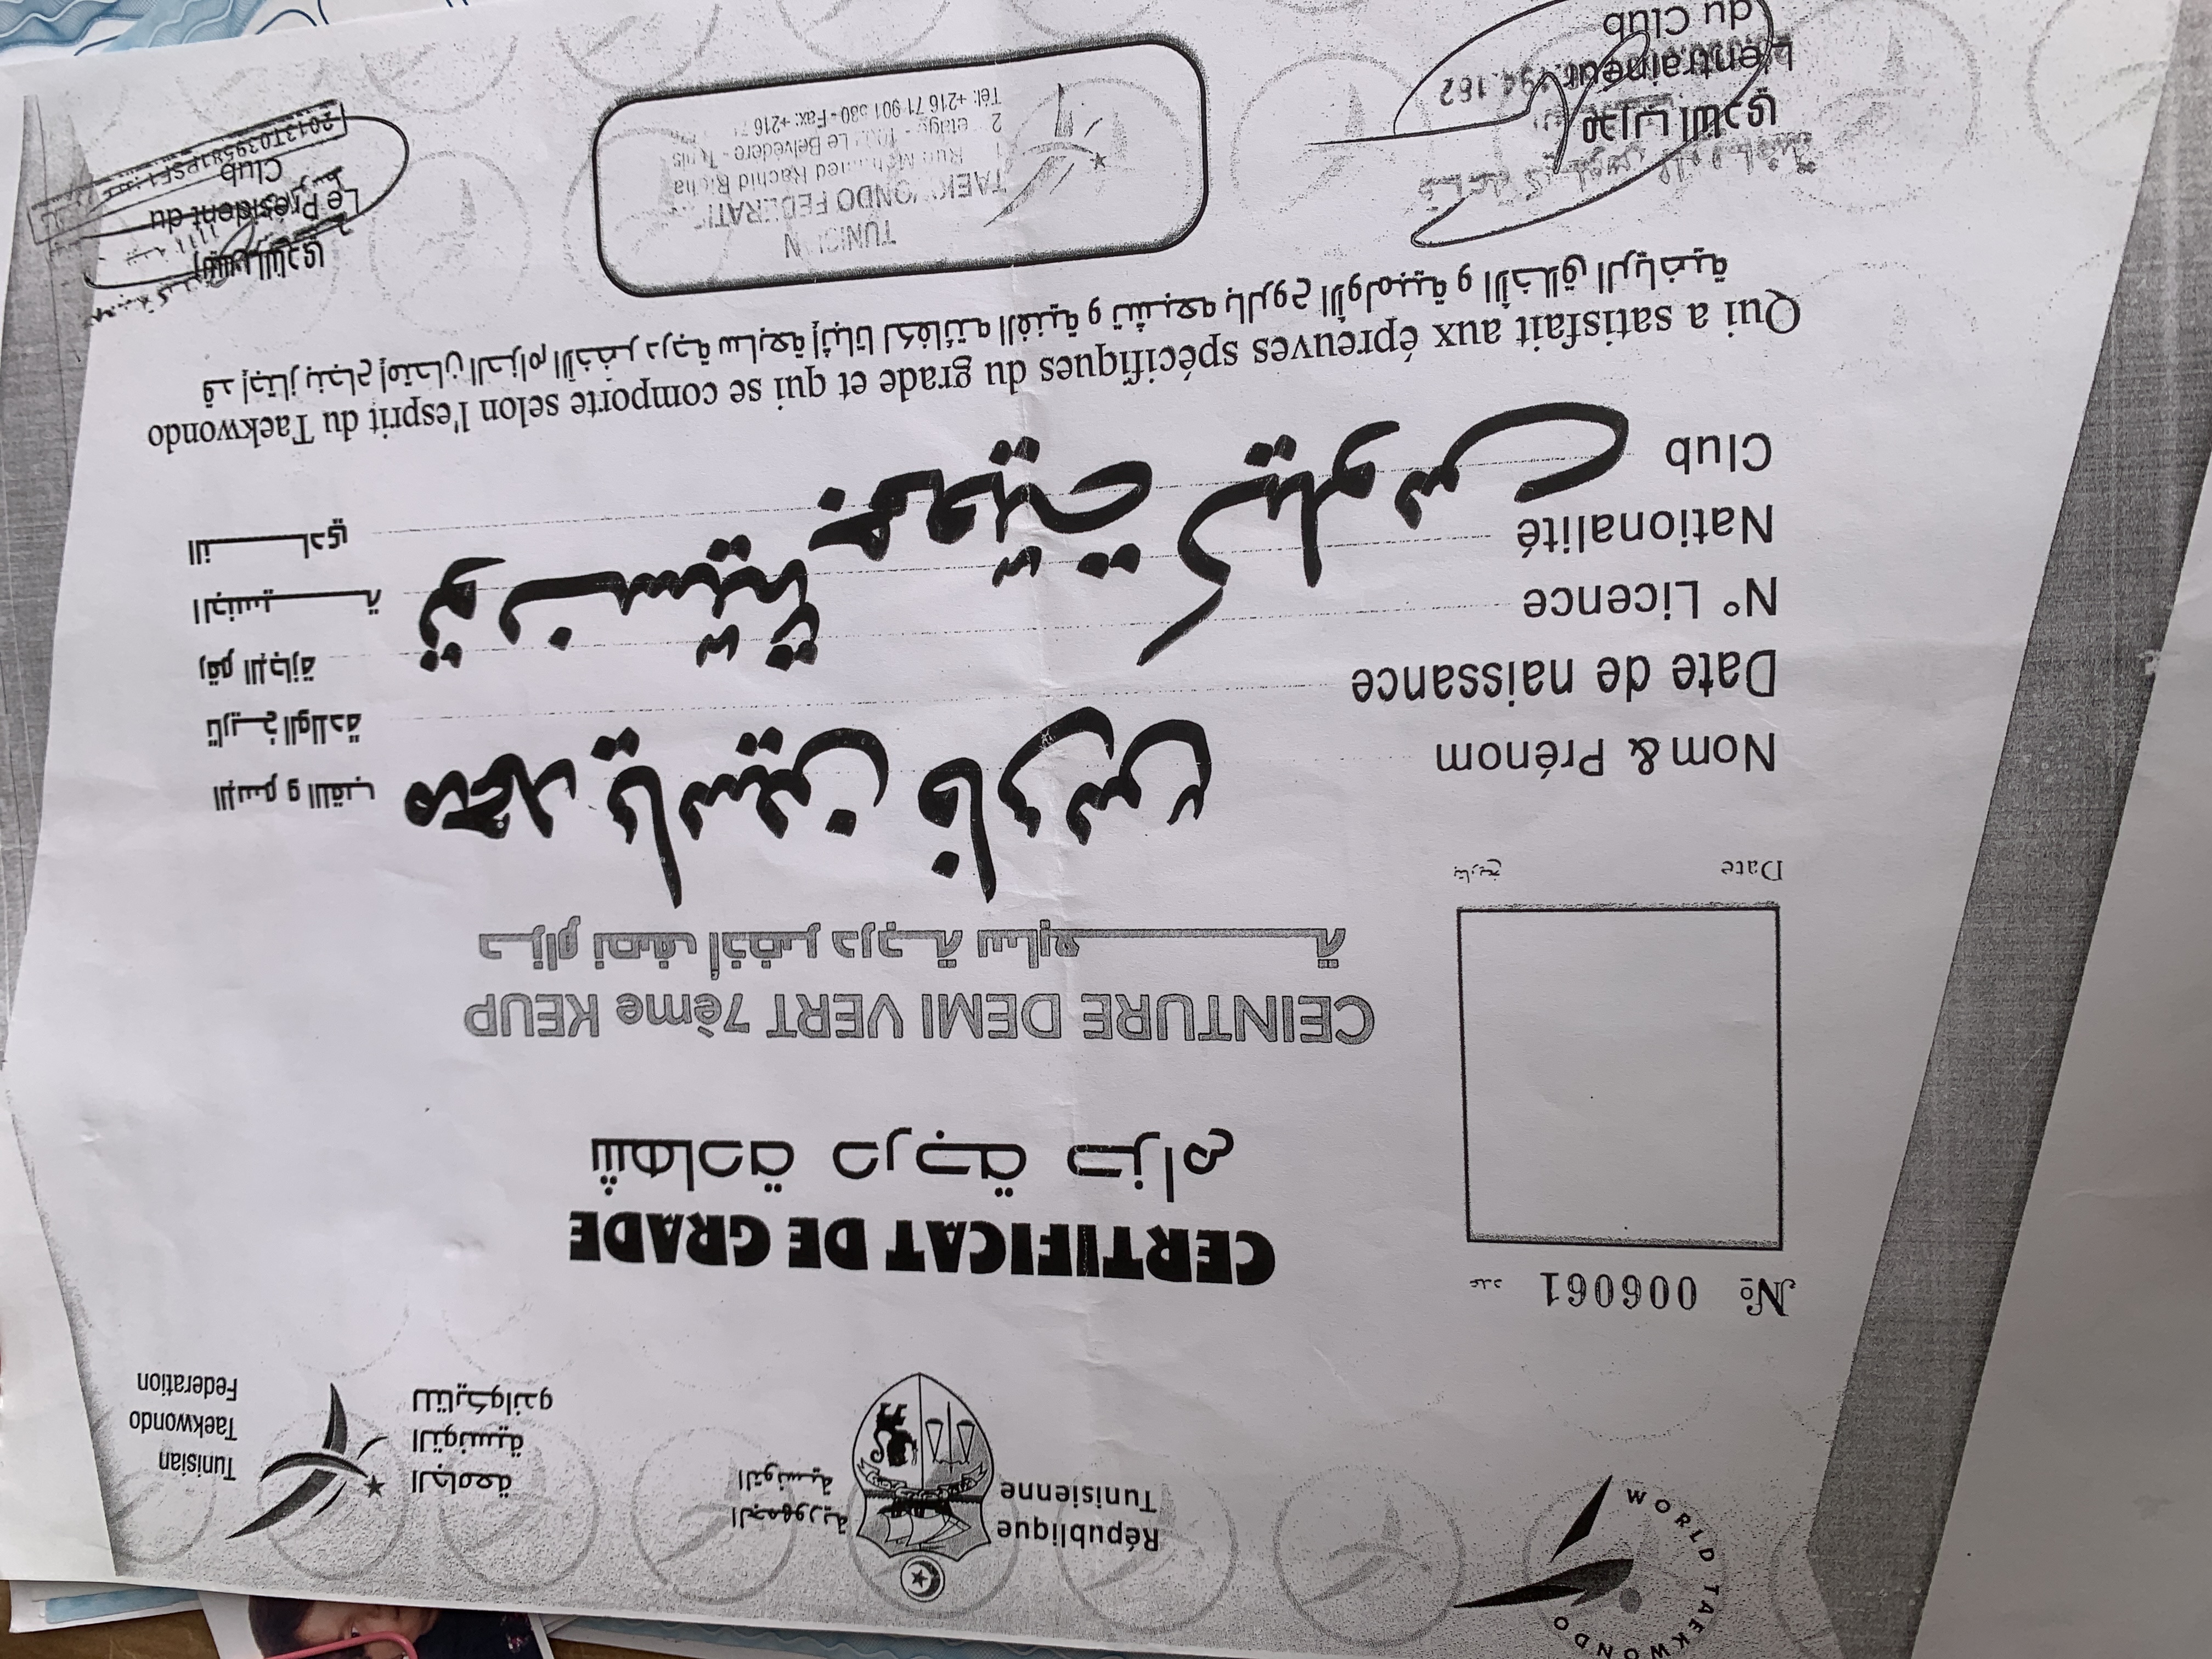 WORLD TAEKWONDO
République
Tunisienne
الجمهورية
التونسية
الجامعة
التونسية
للتايكواندو
Tunisian
Taekwondo
Federation
№ 006061 عدد
CERTIFICAT DE GRADE
شهادة درجة حزام
CEINTURE DEMI VERT 7ème KEUP
حزام نصف أخضر درجة سابعة
Date تاريخ
Nom & Prénom محمد ياسين فارس الإسم و اللقب
Date de naissance تاريخ الولادة
N° Licence رقم الإجازة
Nationalité الجنسية
Club النادي
Qui a satisfait aux épreuves spécifiques du grade et qui se comporte selon l'esprit du Taekwondo
قد إجتاز بنجاح إمتحان الحزام الأخضر درجة سابعة إثباتا لكفائته الفنية و تشبعه بالروح الأولمبية و الأخلاق الرياضية
مدرب النادي
L'entraineur
du Club
TUNISIAN
TAEKWONDO FEDERATI
Rue Mohamed Rachid Ridha
2 etage - 1002 Le Belvédère - Tunis
Tél: +216 71 901 580 - Fax: +216 71
رئيس النادي
Le Président du
Club